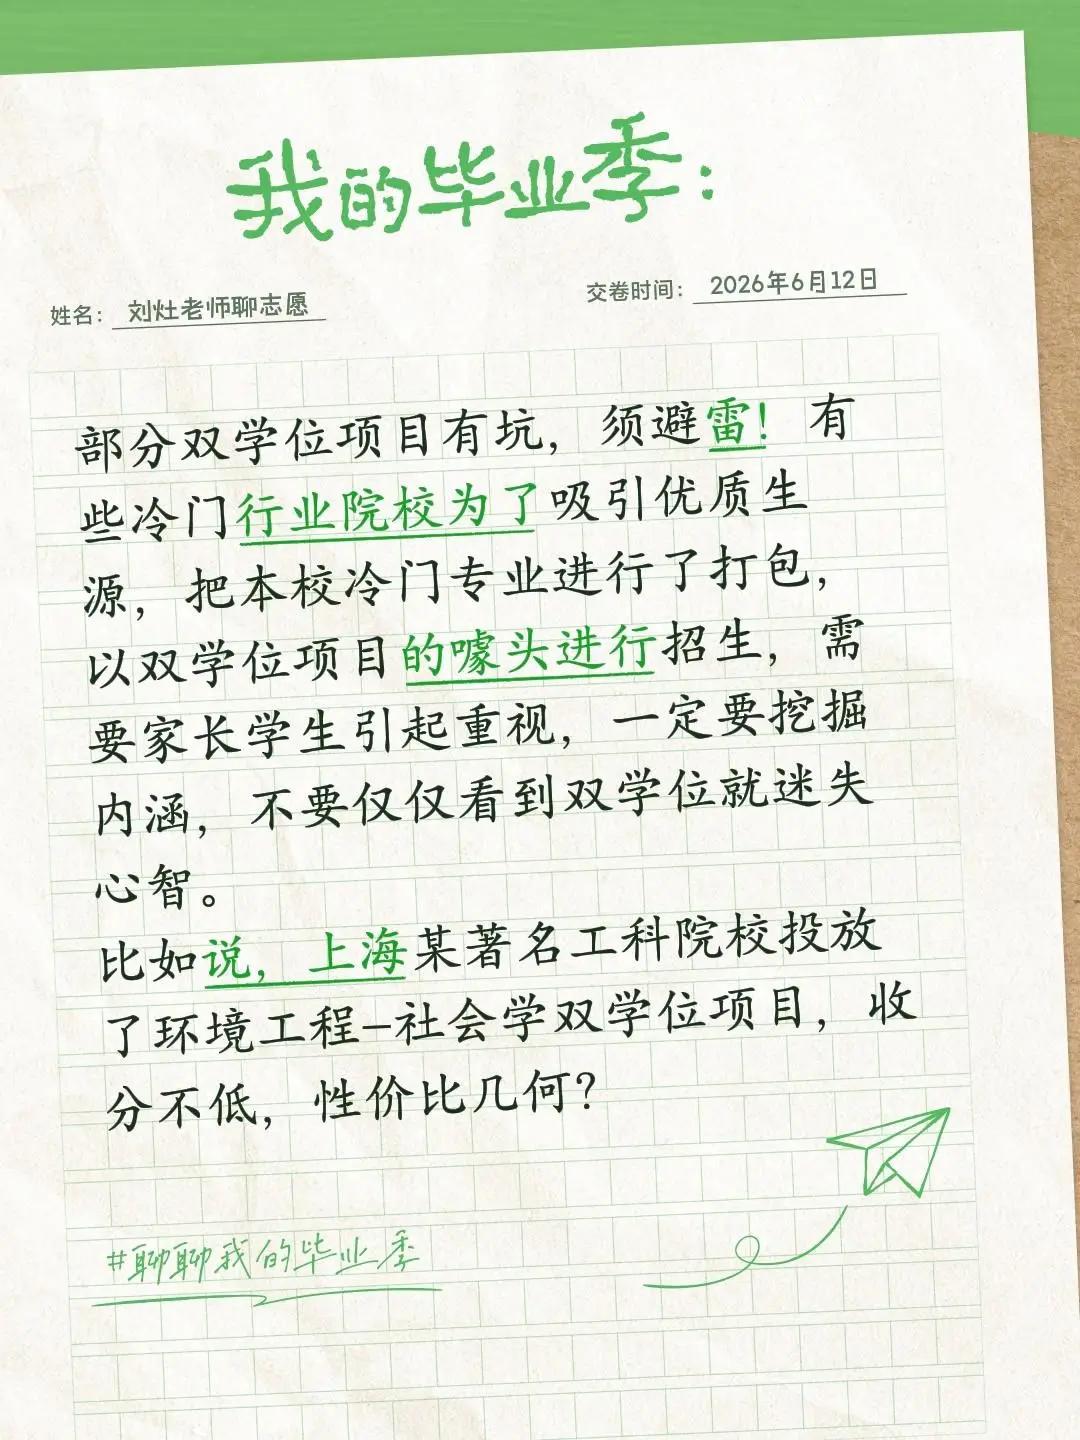 我的毕业季：
姓名： 刘灶老师聊志愿
交卷时间： 2026年6月12日
部分双学位项目有坑，须避雷！有
些冷门行业院校为了吸引优质生
源，把本校冷门专业进行了打包，
以双学位项目的噱头进行招生，需
要家长学生引起重视，一定要挖掘
内涵，不要仅仅看到双学位就迷失
心智。
比如说，上海某著名工科院校投放
了环境工程-社会学双学位项目，收
分不低，性价比几何？
#聊聊我的毕业季